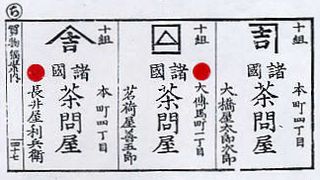 十組
本町四丁目
諸國
茶問屋
大橋屋太郎次郎
十組
大傳馬町一丁目
諸國
茶問屋
茗荷屋善五郎
十組
本町四丁目
諸國
茶問屋
長井屋利兵衛
ち
買物獨案内
四十七